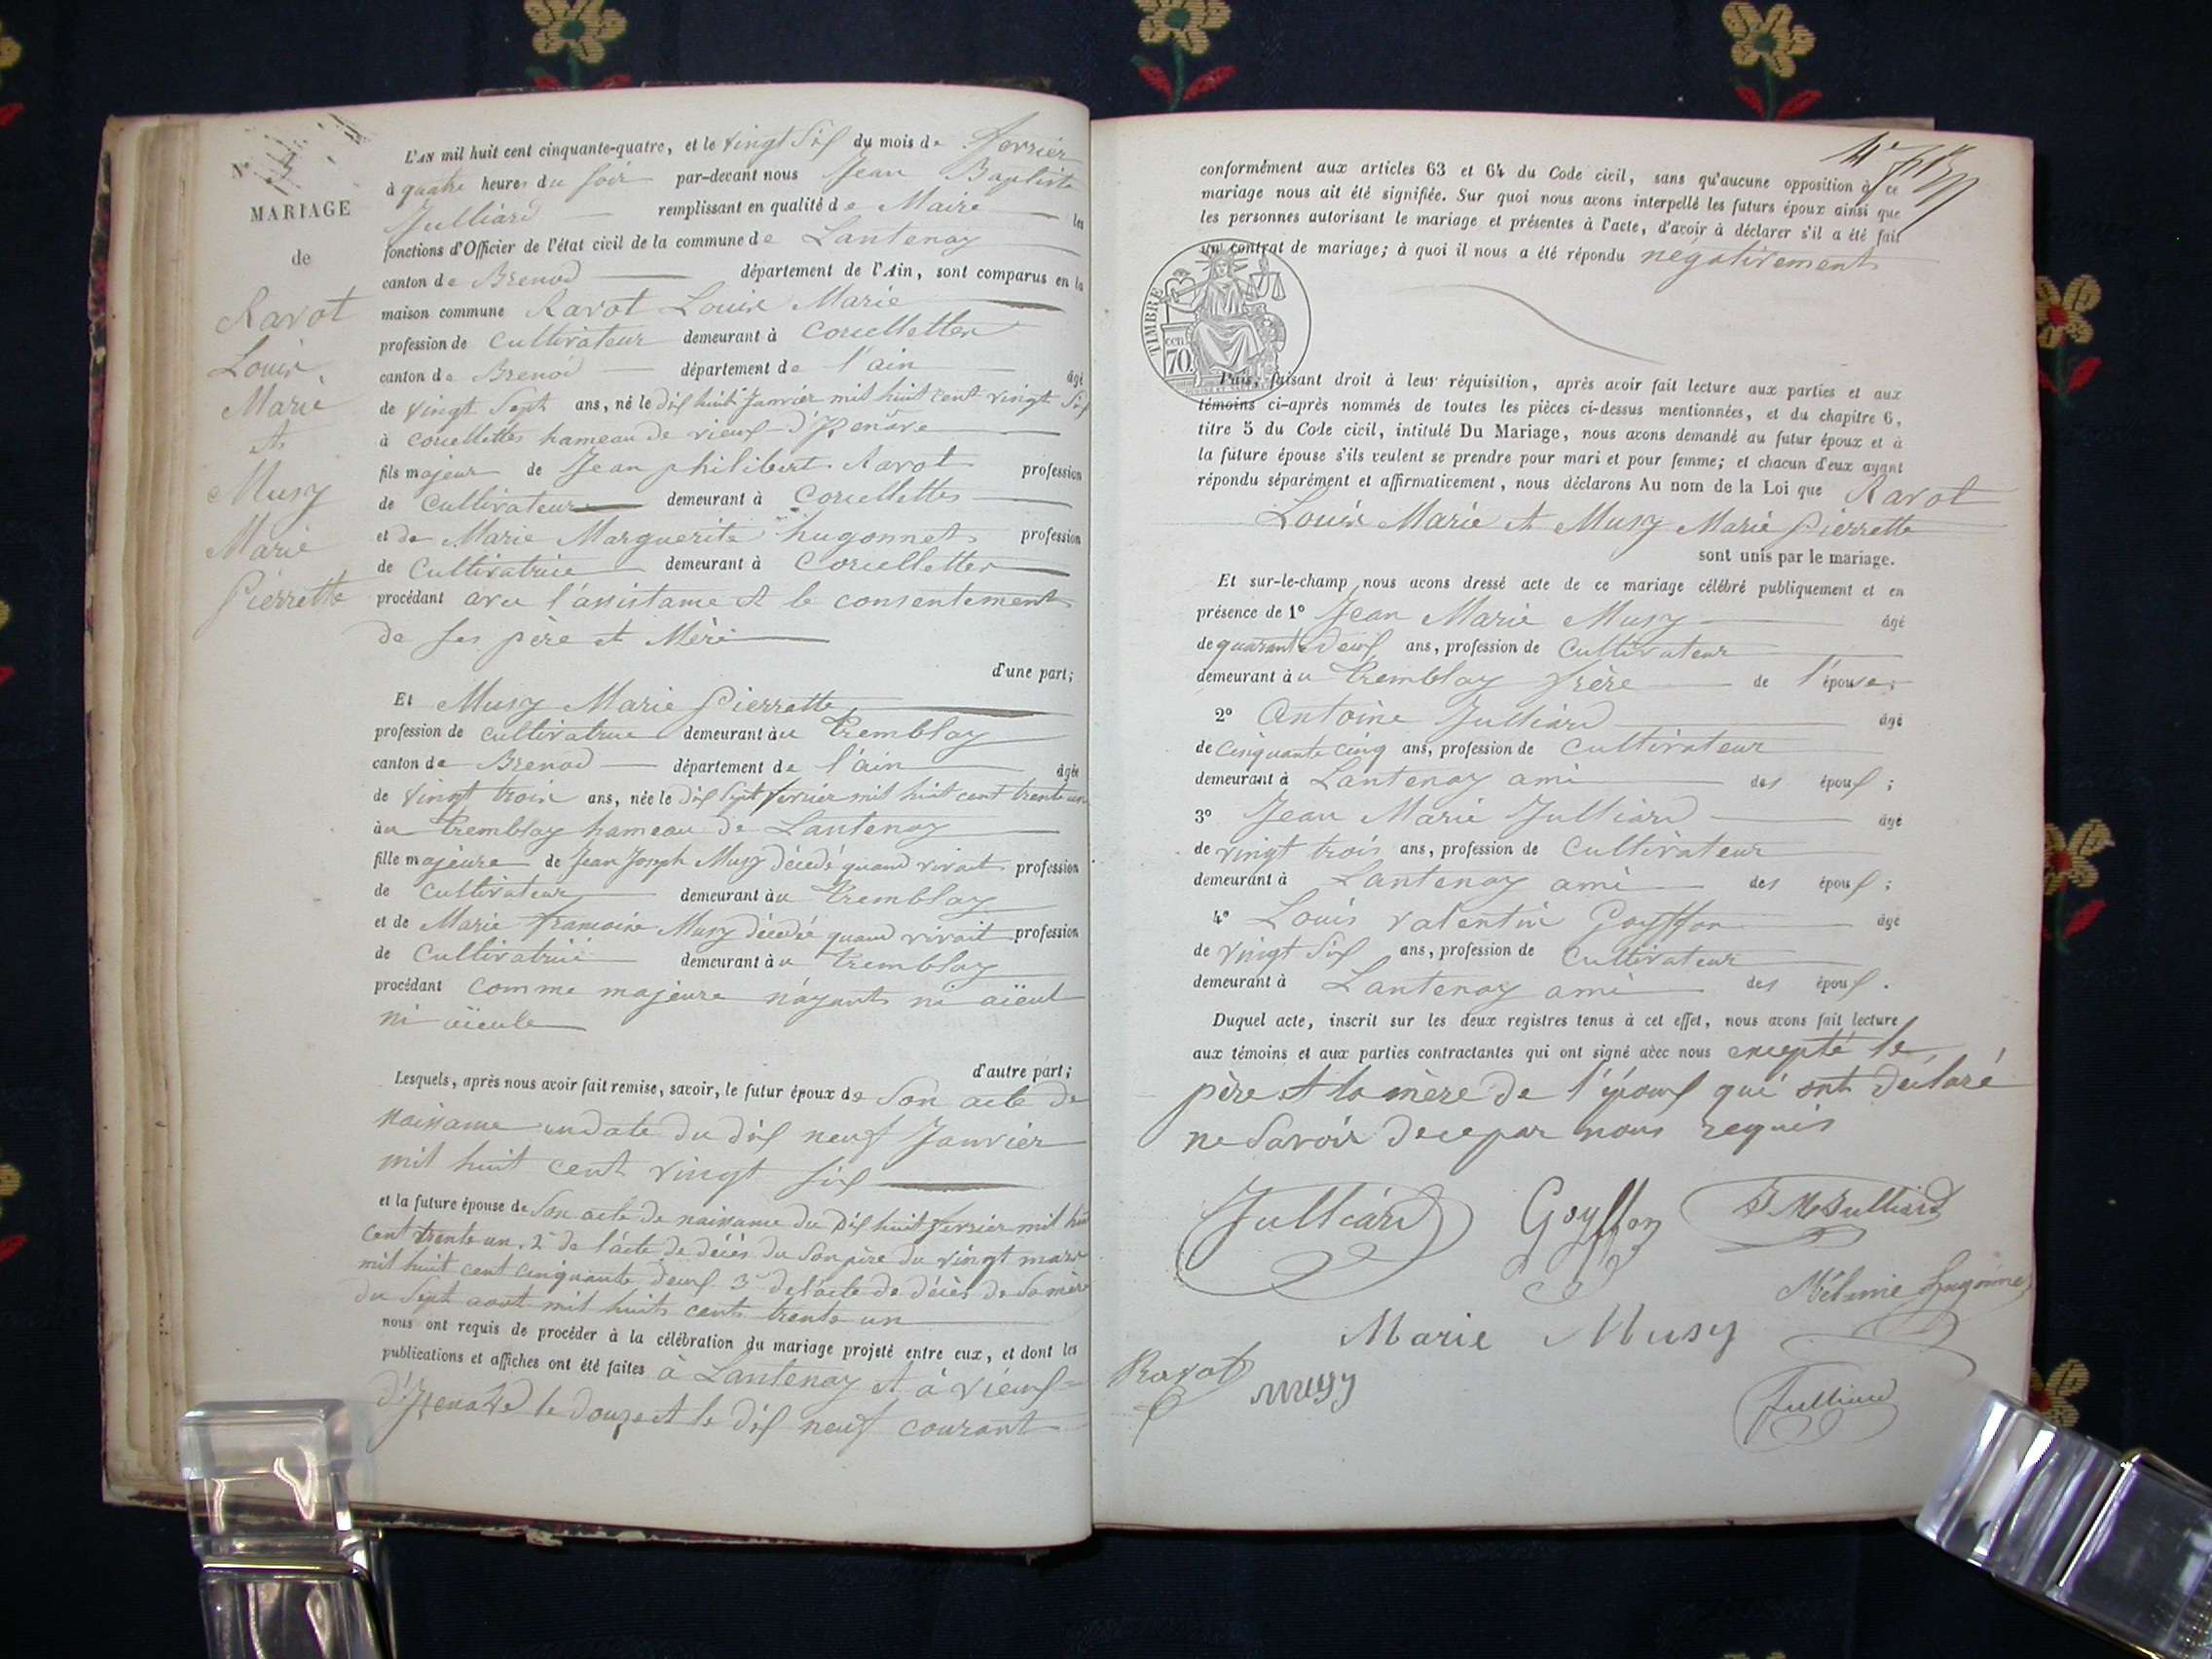 N°
MARIAGE
de
Ravot
Louis
Marie
et
Musy
Marie
Pierrette
L'AN mil huit cent cinquante-quatre, et le vingt Six du mois de fevrier
à quatre heures du soir par-devant nous Jean Baptiste
Julliard remplissant en qualité de Maire les
fonctions d'Officier de l'état civil de la commune de Lantenay
canton de Brenod département de l'Ain, sont comparus en la
maison commune Ravot Louis Marie
profession de Cultivateur demeurant à Corcellettes
canton de Brenod département de l'ain âgé
de vingt Sept ans, né le dix huit Janvier mil huit cent vingt Six
à corcellettes hameau de vieux-d'Izenave
fils majeur de Jean philibert Ravot profession
de Cultivateur demeurant à Corcellettes
et de Marie Marguerite hugonnet profession
de Cultivatrice demeurant à Corcellettes
procédant avec l'assistance et le consentement
de ses père et Mère
d'une part;
Et Musy Marie Pierrette
profession de cultivatrice demeurant àu tremblay
canton de Brenod département de l'ain âgée
de vingt trois ans, née le dix Sept fevrier mil huit cent trente un
àu tremblay hameau de Lantenay
fille majeure de Jean Joseph Musy décedé quand vivait profession
de cultivateur demeurant àu tremblay
et de Marie francoise Musy décedée quand vivait profession
de Cultivatrice demeurant àu tremblay
procédant comme majeure n'ayant ni aïeul
ni aïeule
d'autre part;
Lesquels, après nous avoir fait remise, savoir, le futur époux de Son acte de
naissance en date du dix neuf Janvier
mil huit cent vingt six
et la future épouse de Son acte de naissance du dix huit fevrier mil huit
cent trente un. 2° de l'acte de décès du Son père du vingt mars
mil huit cent cinquante deux 3° de l'acte de décès de Sa mère
du Sept aout mil huit cents trente un
nous ont requis de procéder à la célébration du mariage projeté entre eux, et dont les
publications et affiches ont été faites à Lantenay et à vieux=
d'Izenave le douze et le dix neuf courant
conformément aux articles 63 et 64 du Code civil, sans qu'aucune opposition à ce
mariage nous ait été signifiée. Sur quoi nous avons interpellé les futurs époux ainsi que
les personnes autorisant le mariage et présentes à l'acte, d'avoir à déclarer s'il a été fait
un contrat de mariage; à quoi il nous a été répondu négativement
TIMBRE
cen
70
Puis, faisant droit à leur réquisition, après avoir fait lecture aux parties et aux
témoins ci-après nommés de toutes les pièces ci-dessus mentionnées, et du chapitre 6,
titre 5 du Code civil, intitulé Du Mariage, nous avons demandé au futur époux et à
la future épouse s'ils veulent se prendre pour mari et pour femme; et chacun d'eux ayant
répondu séparément et affirmativement, nous déclarons Au nom de la Loi que Ravot
Louis Marie et Musy Marie Pierrette
sont unis par le mariage.
Et sur-le-champ nous avons dressé acte de ce mariage célébré publiquement et en
présence de 1° Jean Marie Musy âgé
de quarante deux ans, profession de Cultivateur
demeurant àu tremblay frère de l'épouse;
2° Antoine Julliard âgé
de cinquante cinq ans, profession de Cultivateur
demeurant à Lantenay ami des époux;
3° Jean Marie Julliard âgé
de vingt trois ans, profession de Cultivateur
demeurant à Lantenay ami des époux;
4° Louis valentin Goyffon âgé
de vingt Six ans, profession de Cultivateur
demeurant à Lantenay ami des époux.
Duquel acte, inscrit sur les deux registres tenus à cet effet, nous avons fait lecture
aux témoins et aux parties contractantes qui ont signé avec nous excepté le
père et la mère de l'époux qui ont déclaré
ne Savoir de ce par nous requis
Julliard Goyffon J M Julliard
Mélanie hugonnet
Marie Musy
Ravot musy
Julliard